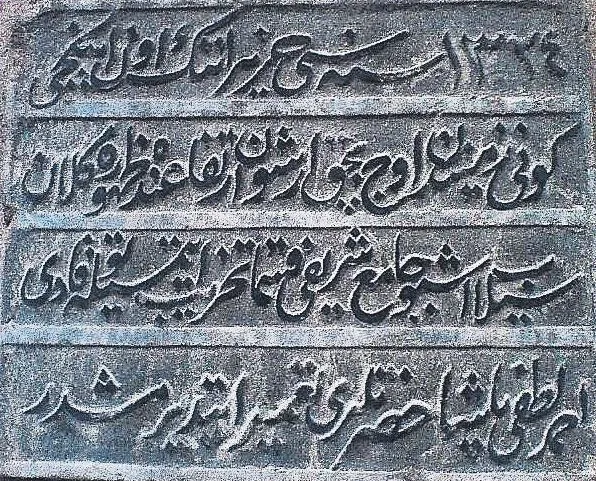 ١٣٢٤ سنه سی حزیرانك اون ایكنجی
كونی زمیندن اوچ بچق ارشون ارتفاعنده ظهوره كلان
سیلاب اشبو جامع شریفی قسما تخریب ایتمسیله توقادی
امیر لطفی پاشا حضرتلری تعمیر ایتدیرمشدر